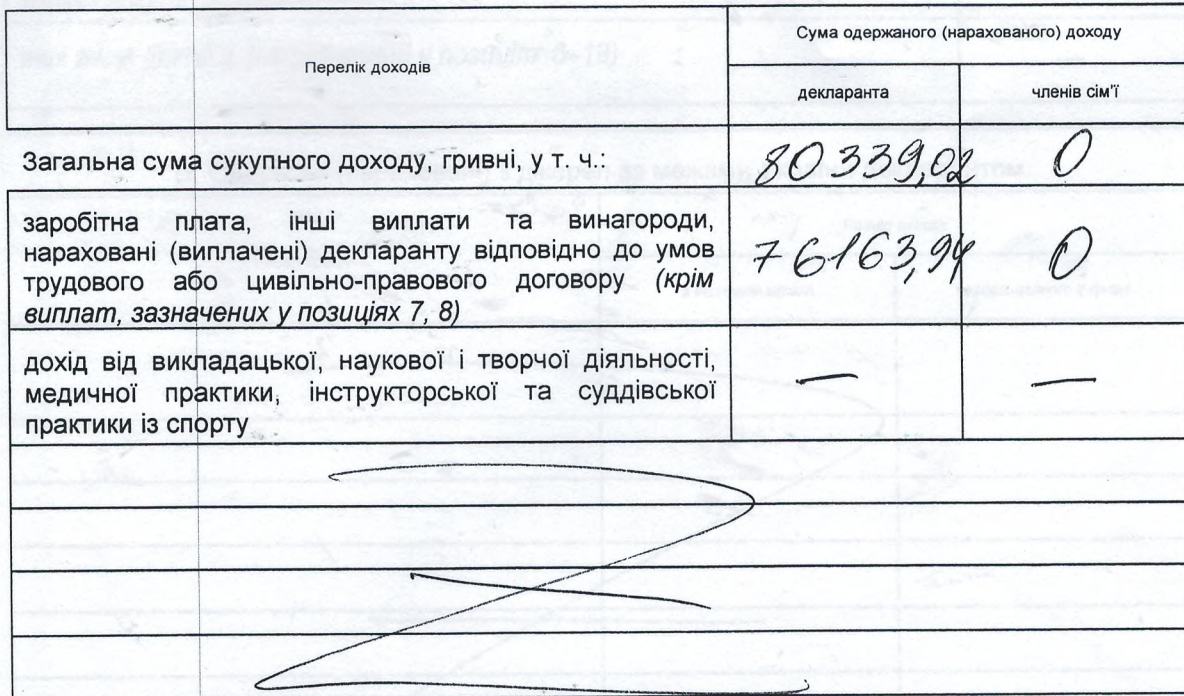 Перелік доходів
Сума одержаного (нарахованого) доходу
декларанта
членів сім'ї
Загальна сума сукупного доходу, гривні, у т. ч.:
80339,02
0
заробітна плата, інші виплати та винагороди,
нараховані (виплачені) декларанту відповідно до умов
трудового або цивільно-правового договору (крім
виплат, зазначених у позиціях 7, 8)
76163,94
0
дохід від викладацької, наукової і творчої діяльності,
медичної практики, інструкторської та суддівської
практики із спорту
—
—